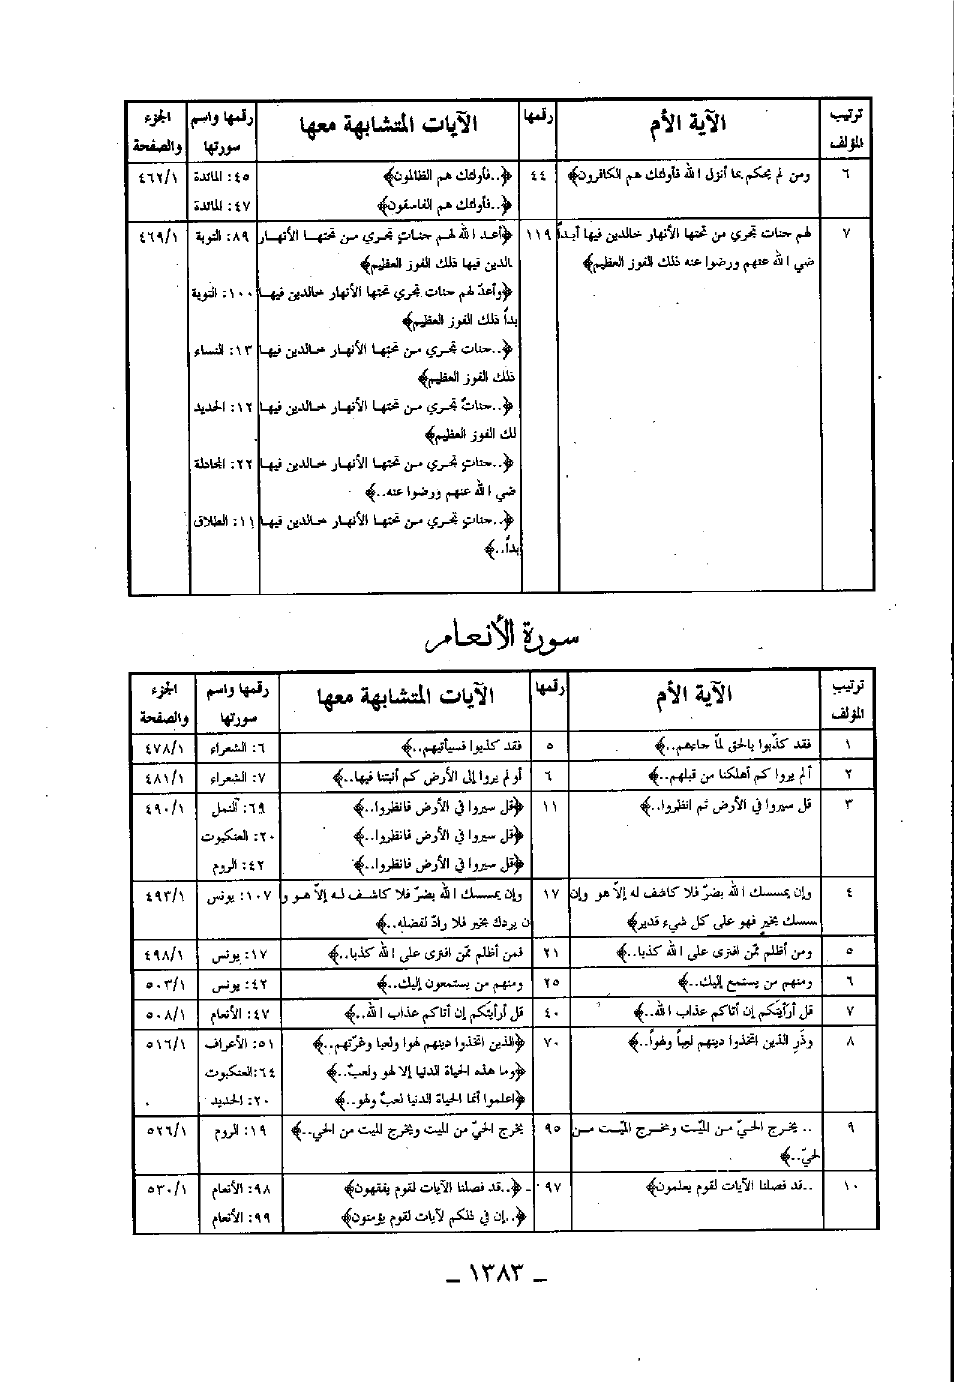 ترتيب المؤلف | الآية الأم | رقمها | الآيات المتشابهة معها | رقمها واسم سورتها | الجزء والصفحة
٦ | ومن لم يحكم بما أنزل الله فأولئك هم الكافرون﴾ | ٤٤ | ﴿..فأولئك هم الظالمون﴾ | ٤٥: المائدة | ٤٦٢/١
﴿..فأولئك هم الفاسقون﴾ | ٤٧: المائدة
٧ | لهم جنات تجري من تحتها الأنهار خالدين فيها أبداً | ١١٩ | ﴿أعد الله لهم جناتٍ تجري من تحتها الأنهار | ٨٩: التوبة | ٤٦٩/١
ضي الله عنهم ورضوا عنه ذلك الفوز العظيم﴾ | الدين فيها ذلك الفوز العظيم﴾
﴿وأعدّ لهم جنات تجري تحتها الأنهار خالدين فيها | ١٠٠: التوبة
بداً ذلك الفوز العظيم﴾
﴿..جنات تجري من تحتها الأنهار خالدين فيها | ١٣: النساء
ذلك الفوز العظيم﴾
﴿..جناتٌ تجري من تحتها الأنهار خالدين فيها | ١٢: الحديد
لك الفوز العظيم﴾
﴿..جناتٍ تجري من تحتها الأنهار خالدين فيها | ٢٢: المجادلة
ضي الله عنهم ورضوا عنه..﴾
﴿..جناتٍ تجري من تحتها الأنهار خالدين فيها | ١١: الطلاق
بداً..﴾
سورة الأنعام
ترتيب المؤلف | الآية الأم | رقمها | الآيات المتشابهة معها | رقمها واسم سورتها | الجزء والصفحة
١ | فقد كذّبوا بالحق لمّا جاءهم..﴾ | ٥ | فقد كذبوا فسيأتيهم..﴾ | ٦: الشعراء | ٤٧٨/١
٢ | ألم يروا كم أهلكنا من قبلهم..﴾ | ٦ | أولم يروا إلى الأرض كم أنبتنا فيها..﴾ | ٧: الشعراء | ٤٨١/١
٣ | قل سيروا في الأرض ثم انظروا..﴾ | ١١ | ﴿قل سيروا في الأرض فانظروا..﴾ | ٦٩: النمل | ٤٩٠/١
﴿قل سيروا في الأرض فانظروا..﴾ | ٢٠: العنكبوت
﴿قل سيروا في الأرض فانظروا..﴾ | ٤٢: الروم
٤ | وإن يمسسك الله بضرّ فلا كاشف له إلاّ هو وإن | ١٧ | وإن يمسسك الله بضرّ فلا كاشف له إلاّ هو و | ١٠٧: يونس | ٤٩٣/١
سسك بخيرٍ فهو على كل شيء قدير﴾ | ن يردك بخير فلا رادّ لفضله..﴾
٥ | ومن أظلم ممّن افترى على الله كذبا..﴾ | ٢١ | فمن أظلم ممّن افترى على الله كذبا..﴾ | ١٧: يونس | ٤٩٨/١
٦ | ومنهم من يستمع إليك..﴾ | ٢٥ | ومنهم من يستمعون إليك..﴾ | ٤٢: يونس | ٥٠٣/١
٧ | قل أرأيتكم إن أتاكم عذاب الله..﴾ | ٤٠ | قل أرأيتكم إن أتاكم عذاب الله..﴾ | ٤٧: الأنعام | ٥٠٨/١
٨ | وذَرِ الذين اتخذوا دينهم لعباً ولهواً..﴾ | ٧٠ | ﴿الذين اتخذوا دينهم لهوا ولعبا وغرّتهم..﴾ | ٥١: الأعراف | ٥١٦/١
﴿وما هذه الحياة الدنيا إلا لهو ولعبٌ..﴾ | ٦٤:العنكبوت
﴿اعلموا أنما الحياة الدنيا لعبٌ ولهو..﴾ | ٢٠: الحديد
٩ | .. يخرج الحيّ من الميّت ومخرج الميّت من | ٩٥ | يخرج الحيّ من الميت ويخرج الميت من الحي..﴾ | ١٩: الروم | ٥٢٦/١
لحيّ..﴾
١٠ | ..قد فصلنا الآيات لقوم يعلمون﴾ | ٩٧ | ﴿..قد فصلنا الآيات لقوم يفقهون﴾ | ٩٨: الأنعام | ٥٣٠/١
﴿..إن في ذلكم لآيات لقوم يؤمنون﴾ | ٩٩: الأنعام
ـ ١٣٨٣ ـ